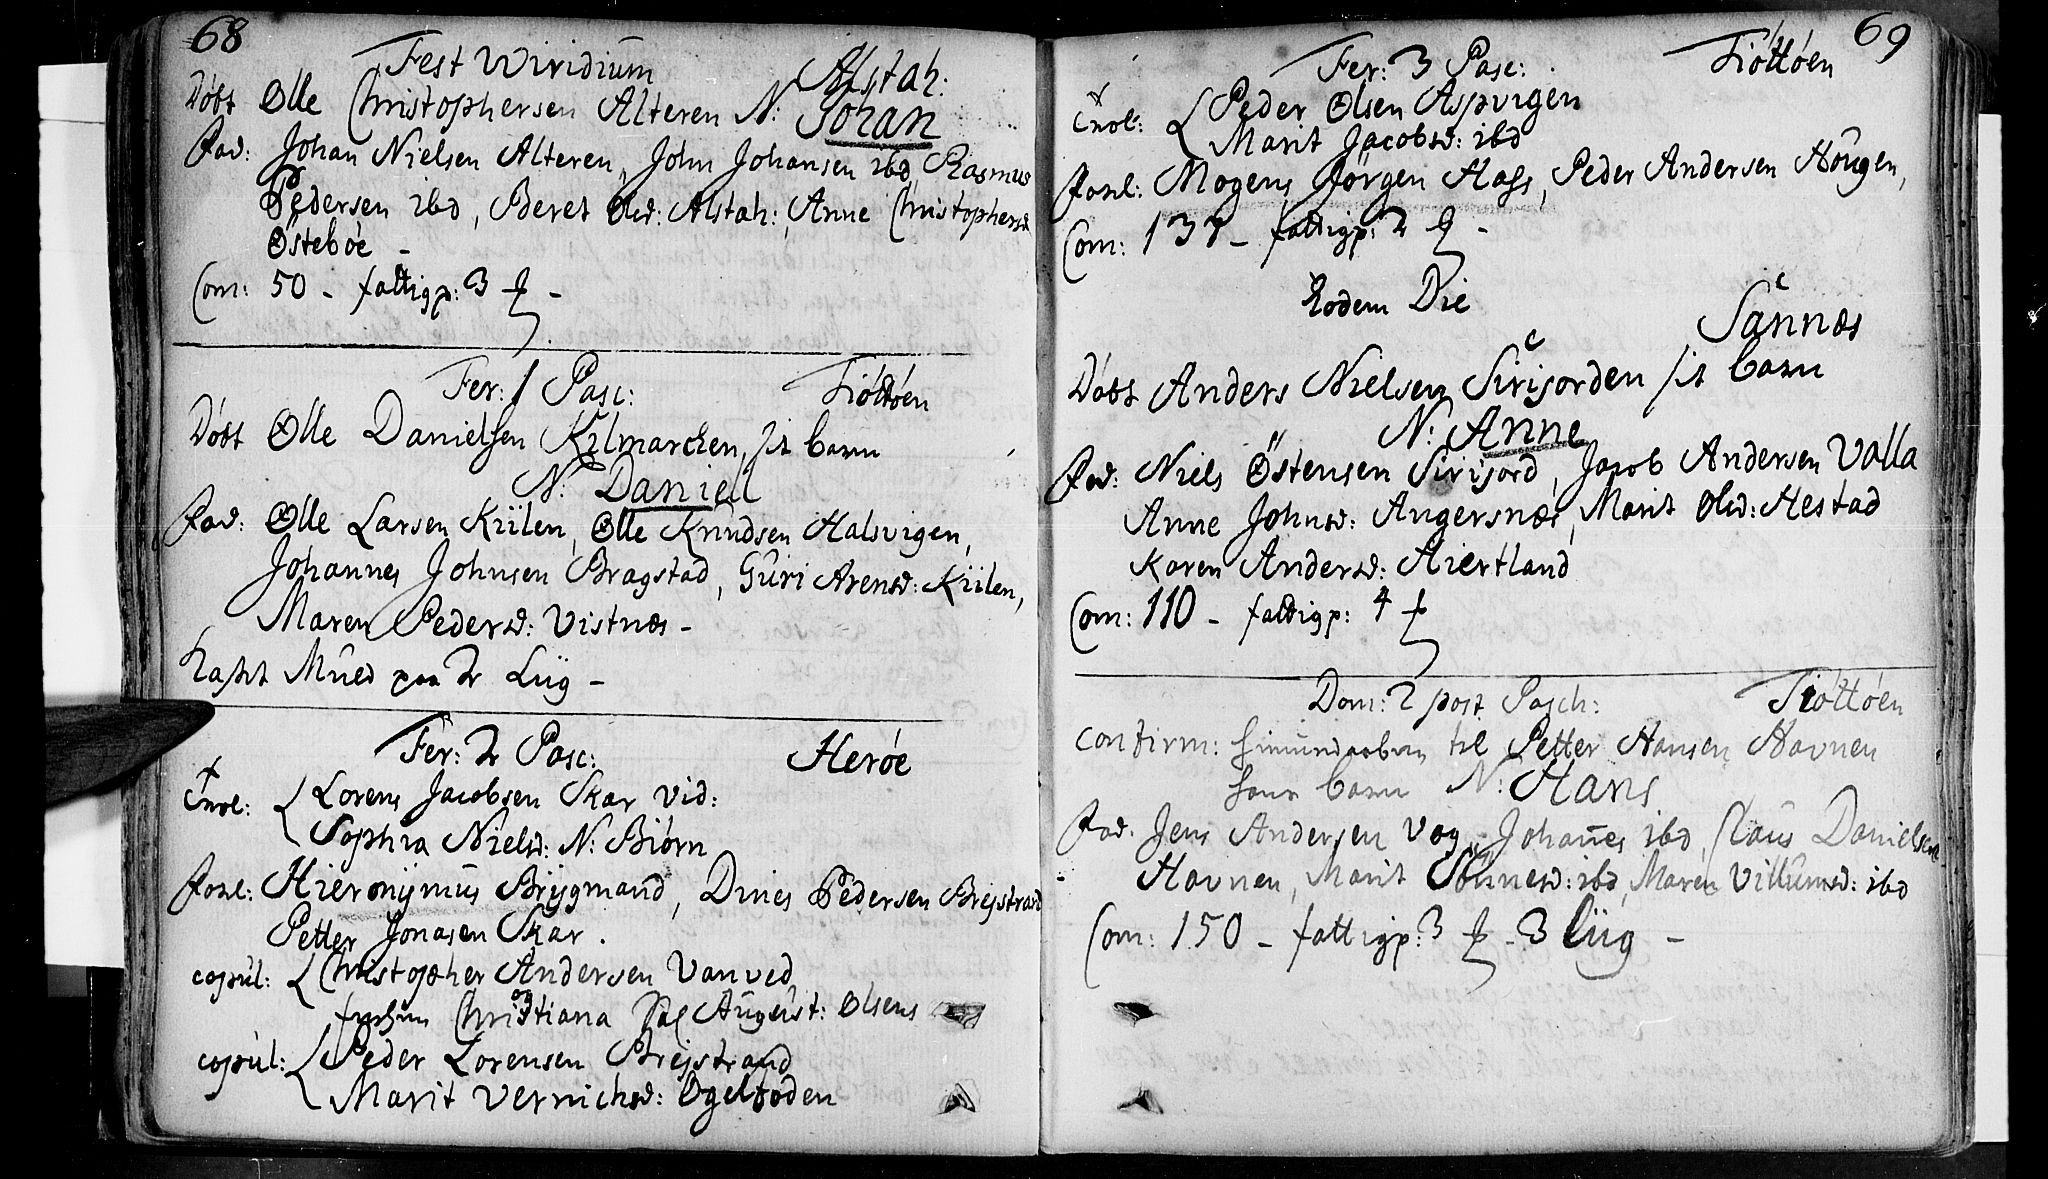 68
Fest Wiridium Alstah:
Døbt Ølle Christophersen Alteren N: Johan
Fad: Johan Nielsen Alteren, John Johansen ibd, Rasmus
Pedersen ibd, Beret Olsd: Alstah:, Anne Christophersd
Østebøe -
Com: 50 - fattigp: 3
Fer: 1 Pasc: Tiøttøen
Døbt Ølle Danielsen Kilmarchen, sit barn
N: Daniel
Fad: Ølle Larsen Kiilen, Ølle Knudsen Halsvigen,
Johannes Johnsen Bragstad, Guri Arensd: Kiilen,
Maren Pedersd: Vistnæs -
kast Muld paa 2 Liig -
Fer: 2 Pasc: Herøe
Trol: Lorens Jacobsen Skar vid:
Sophia Nielsd: N: Biørn
Forl: Hieronijmus Brijgmand, Dines Pedersen Breistrand
Petter Jonasen Skar.
copul: Christopher Andersen Vanved
Christiana Sal August: Olsens
copul: Peder Lorensen Breistrand
Marit Vernichsd: Øgelfoden
69
Fer: 3 Pasc: Tiøttøen
Trol: Peder Olsen Aspvigen
Marit Jacobsd: ibd
Forl: Mogens Jørgen Hass, Peder Andersen Hougen,
Com: 137 - fattigp: 2
Eodem Die
Sannæs
Døbt Anders Nielsen Sirijorden sit barn
N: Anne
Fad: Niels Østensen Sirijord, Jacob Andersen Valla
Anne Johnsd: Angersnæs, Marit Olsd: Hestad
Karen Andersd: Hiertland
Com: 110 - fattigp: 4
Dom: 2 post Pasch: Tiøttøen
confirm: til Petter Hansen Havnen
barn N: Hans
Fad: Jens Andersen Vog, Johanes ibd, Claus Danielsen
Havnen, Marit Sønnesd: ibd, Maren Villumsd: ibd
Com: 150 - fattigp: 3 - 3 Liig -